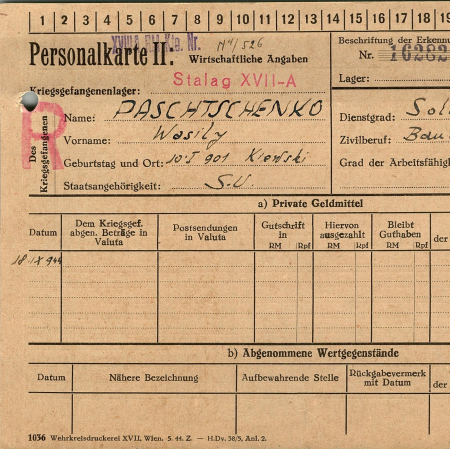 1 2 3 4 5 6 7 8 9 10 11 12 13 14 15 16 17 18 19
Personalkarte II:
Wirtschaftliche Angaben
Beschriftung der Erkennu
Nr. 16282
Kriegsgefangenenlager: Stalag XVII-A
Lager:
R
Des Kriegsgefangenen
Name: PASCHTSCHENKO
Dienstgrad: Sol
Vorname: Wasily
Zivilberuf: Bau
Geburtstag und Ort: 10.I 901 Kiewski
Grad der Arbeitsfähig
Staatsangehörigkeit: S.U.
a) Private Geldmittel
Datum
Dem Kriegsgef. abgen. Beträge in Valuta
Postsendungen in Valuta
Gutschrift in RM Rpf
Hiervon ausgezahlt RM Rpf
Bleibt Guthaben RM Rpf
der
18.IX 944
b) Abgenommene Wertgegenstände
Datum
Nähere Bezeichnung
Aufbewahrende Stelle
Rückgabevermerk mit Datum
der
1036 Wehrkreisdruckerei XVII, Wien. 5. 44. Z. — H.Dv. 38/5, Anl. 2.